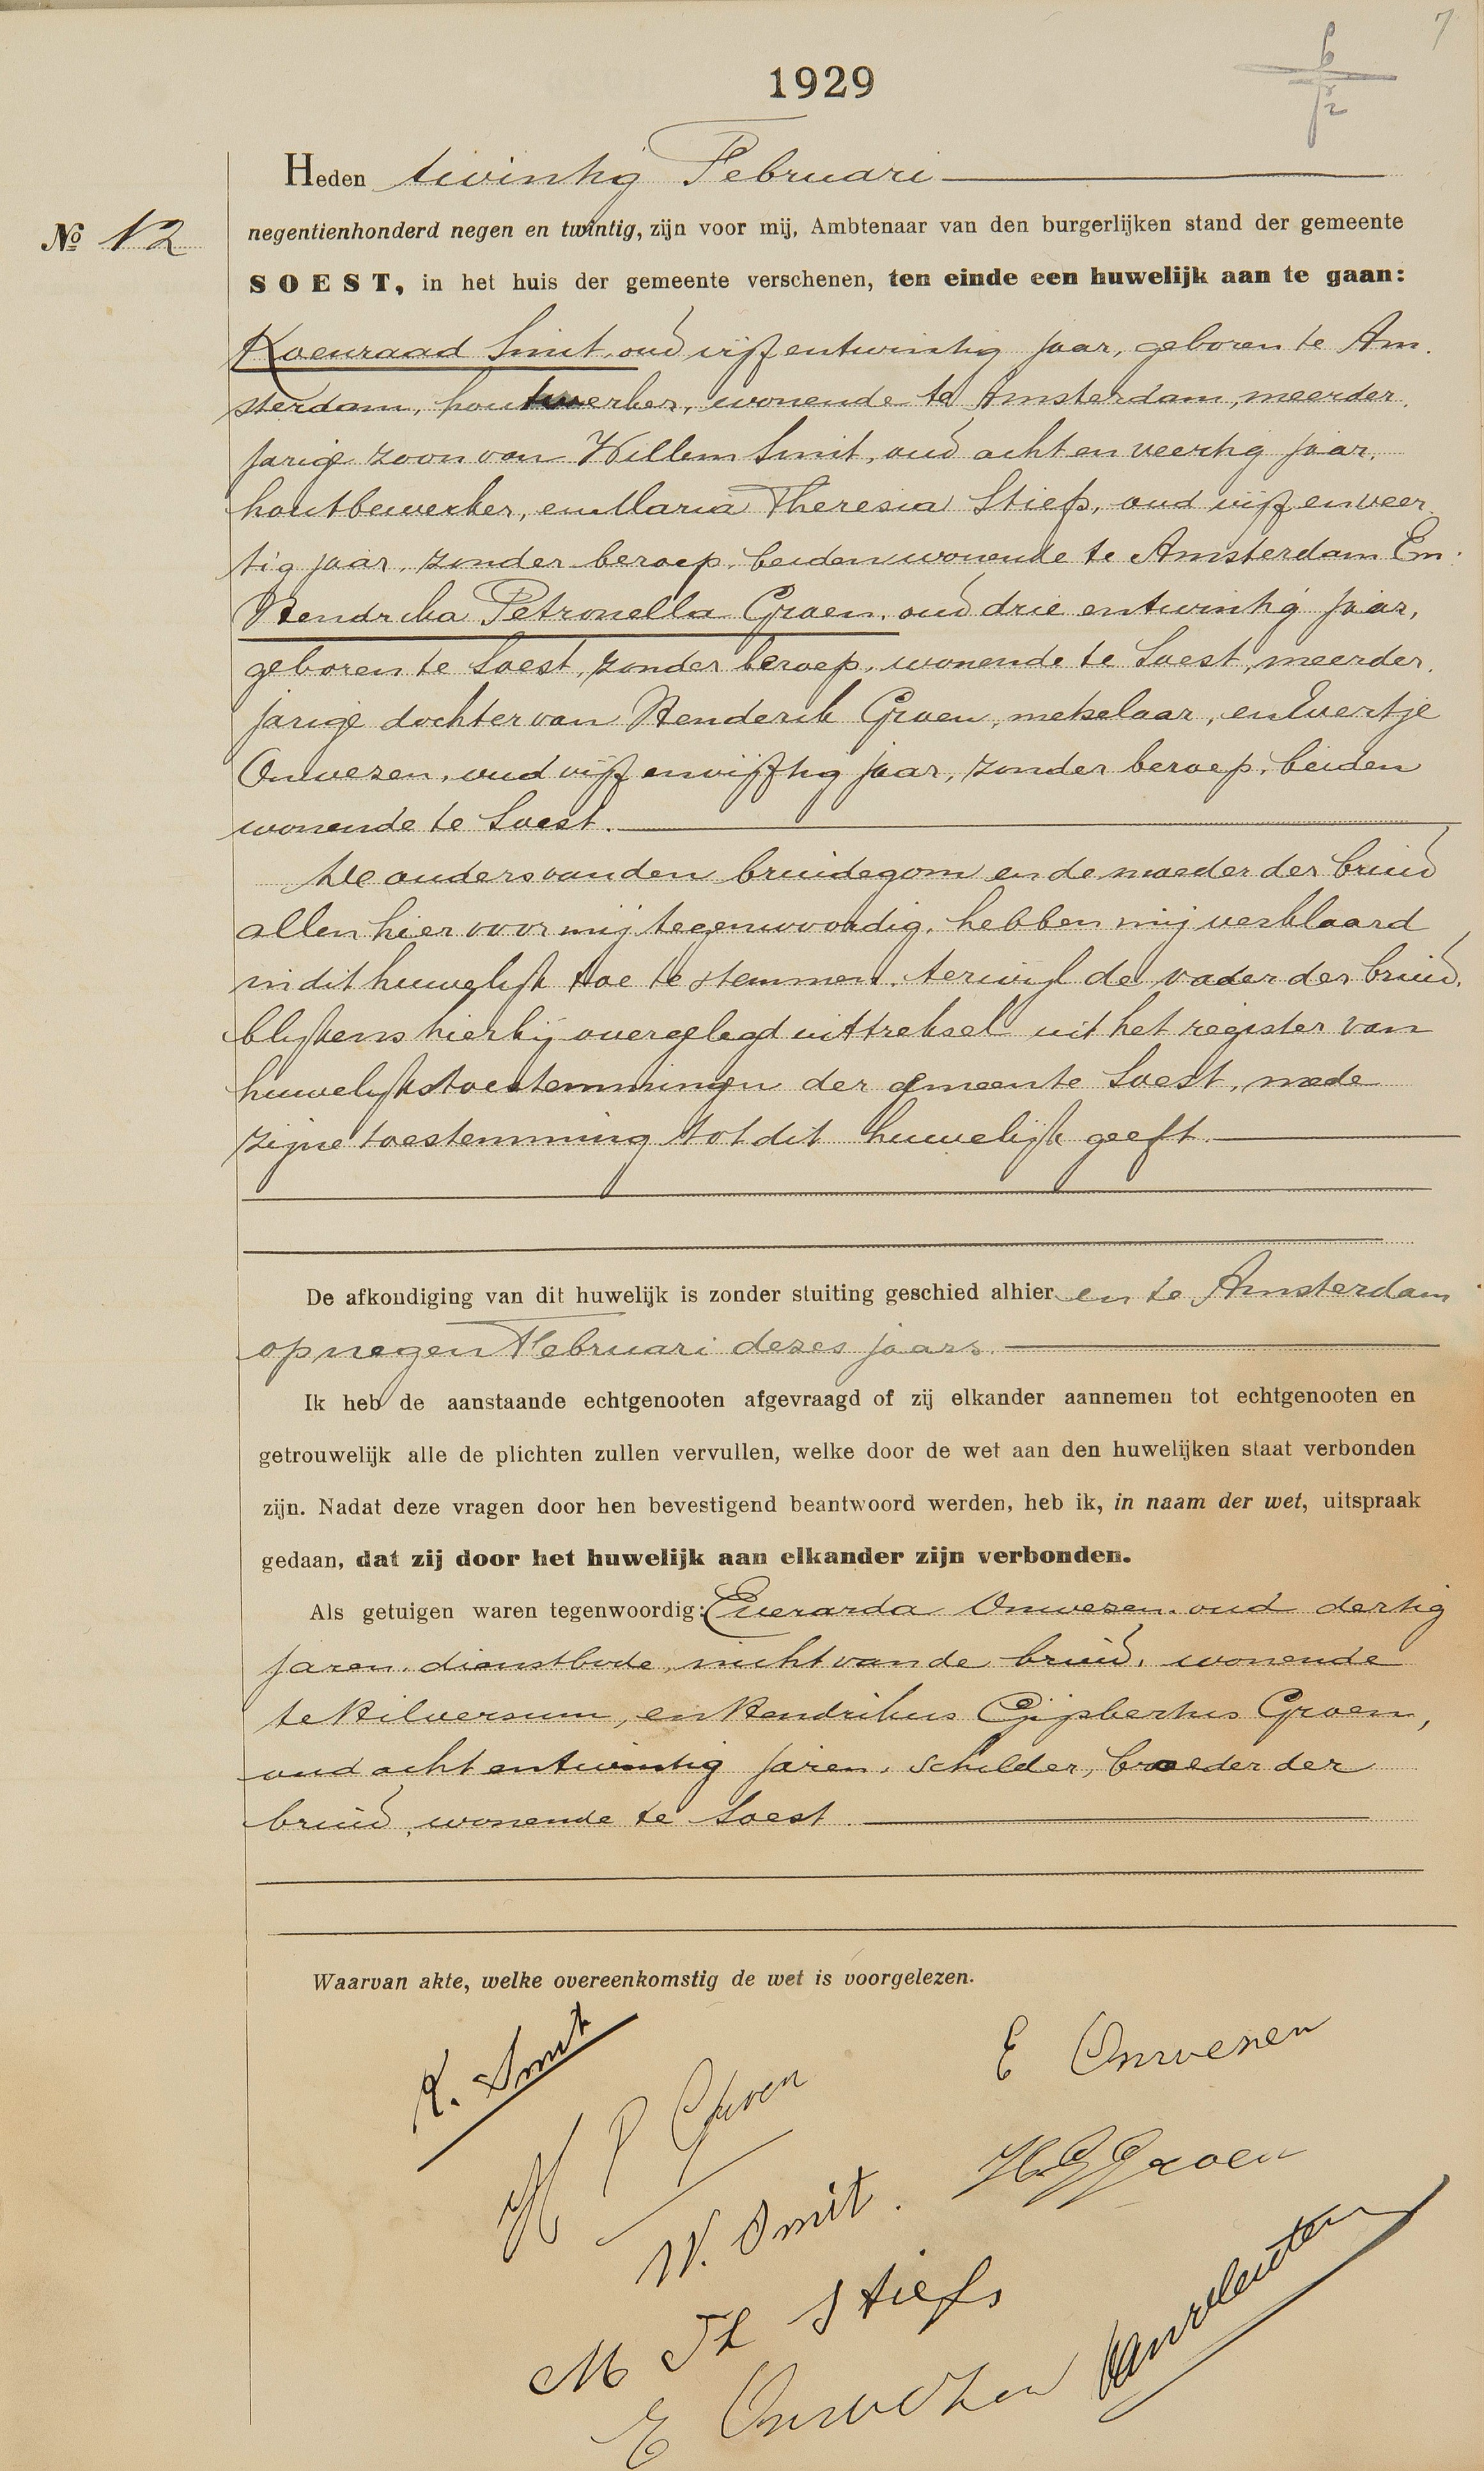 7
1929
Heden twintig Februari
No 12
negentienhonderd negen en twintig, zijn voor mij, Ambtenaar van den burgerlijken stand der gemeente
SOEST, in het huis der gemeente verschenen, ten einde een huwelijk aan te gaan:
Koenraad Smit, oud vijf en twintig jaar, geboren te Am-
sterdam, houtbewerker, wonende te Amsterdam, meerder-
jarige zoon van Willem Smit, oud acht en veertig jaar,
houtbewerker, en Maria Theresia Stiefs, oud vijf en veer-
tig jaar, zonder beroep, beiden wonende te Amsterdam En
Hendrika Petronella Groen, oud drie en twintig jaar,
geboren te Soest, zonder beroep, wonende te Soest, meerder-
jarige dochter van Henderik Groen, metselaar, en Evertje
Onwezen, oud vijf en vijftig jaar, zonder beroep, beiden
wonende te Soest.
De ouders van den bruidegom en de moeder der bruid
allen hier voor mij tegenwoordig, hebben mij verklaard
in dit huwelijk toe te stemmen, terwijl de vader der bruid,
blijkens hierbij overgelegd uittreksel uit het register van
huwelijkstoestemmingen der gemeente Soest, mede
zijne toestemming tot dit huwelijk geeft.
De afkondiging van dit huwelijk is zonder stuiting geschied alhier en te Amsterdam
op negen Februari dezes jaars.
Ik heb de aanstaande echtgenooten afgevraagd of zij elkander aannemen tot echtgenooten en
getrouwelijk alle de plichten zullen vervullen, welke door de wet aan den huwelijken staat verbonden
zijn. Nadat deze vragen door hen bevestigend beantwoord werden, heb ik, in naam der wet, uitspraak
gedaan, dat zij door het huwelijk aan elkander zijn verbonden.
Als getuigen waren tegenwoordig: Everarda Onwezen, oud dertig
jaren, dienstbode, nicht van de bruid, wonende
te Hilversum, en Hendrikus Gijsbertus Groen,
oud acht en twintig jaren, schilder, broeder der
bruid, wonende te Soest.
Waarvan akte, welke overeenkomstig de wet is voorgelezen.
K. Smit
E Onwezen
H P Groen
H.G Groen
W. Smit.
M Th Stiefs
E Onwezen